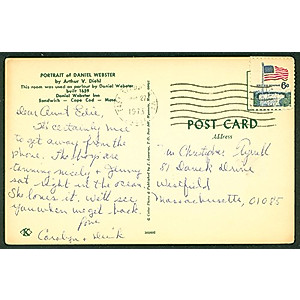 PORTRAIT of DANIEL WEBSTER
by Arthur V. Diehl
This room was used as parlour by Daniel Webster
built 1639
Daniel Webster Inn
Sandwich - Cape Cod - Mass.
1971
6¢
POST CARD
Dear Aunt Edie,
It's certainly nice
to get away from the
phone. The boys are
tanning nicely & Jenny
sat right in the ocean.
She loves it. We'll see
you when we get back.
Love
Carolyn &
Mrs Christopher
51 Drive
Westfield
Massachusetts, 01085
K